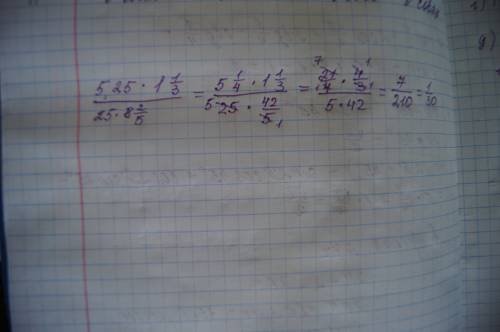 (5,25 · 1 1/3)/(25 · 8 2/5) = (5 1/4 · 1 1/3)/(25 · 42/5) = (21/4 · 4/3)/(5 · 42) = 7/210 = 1/30